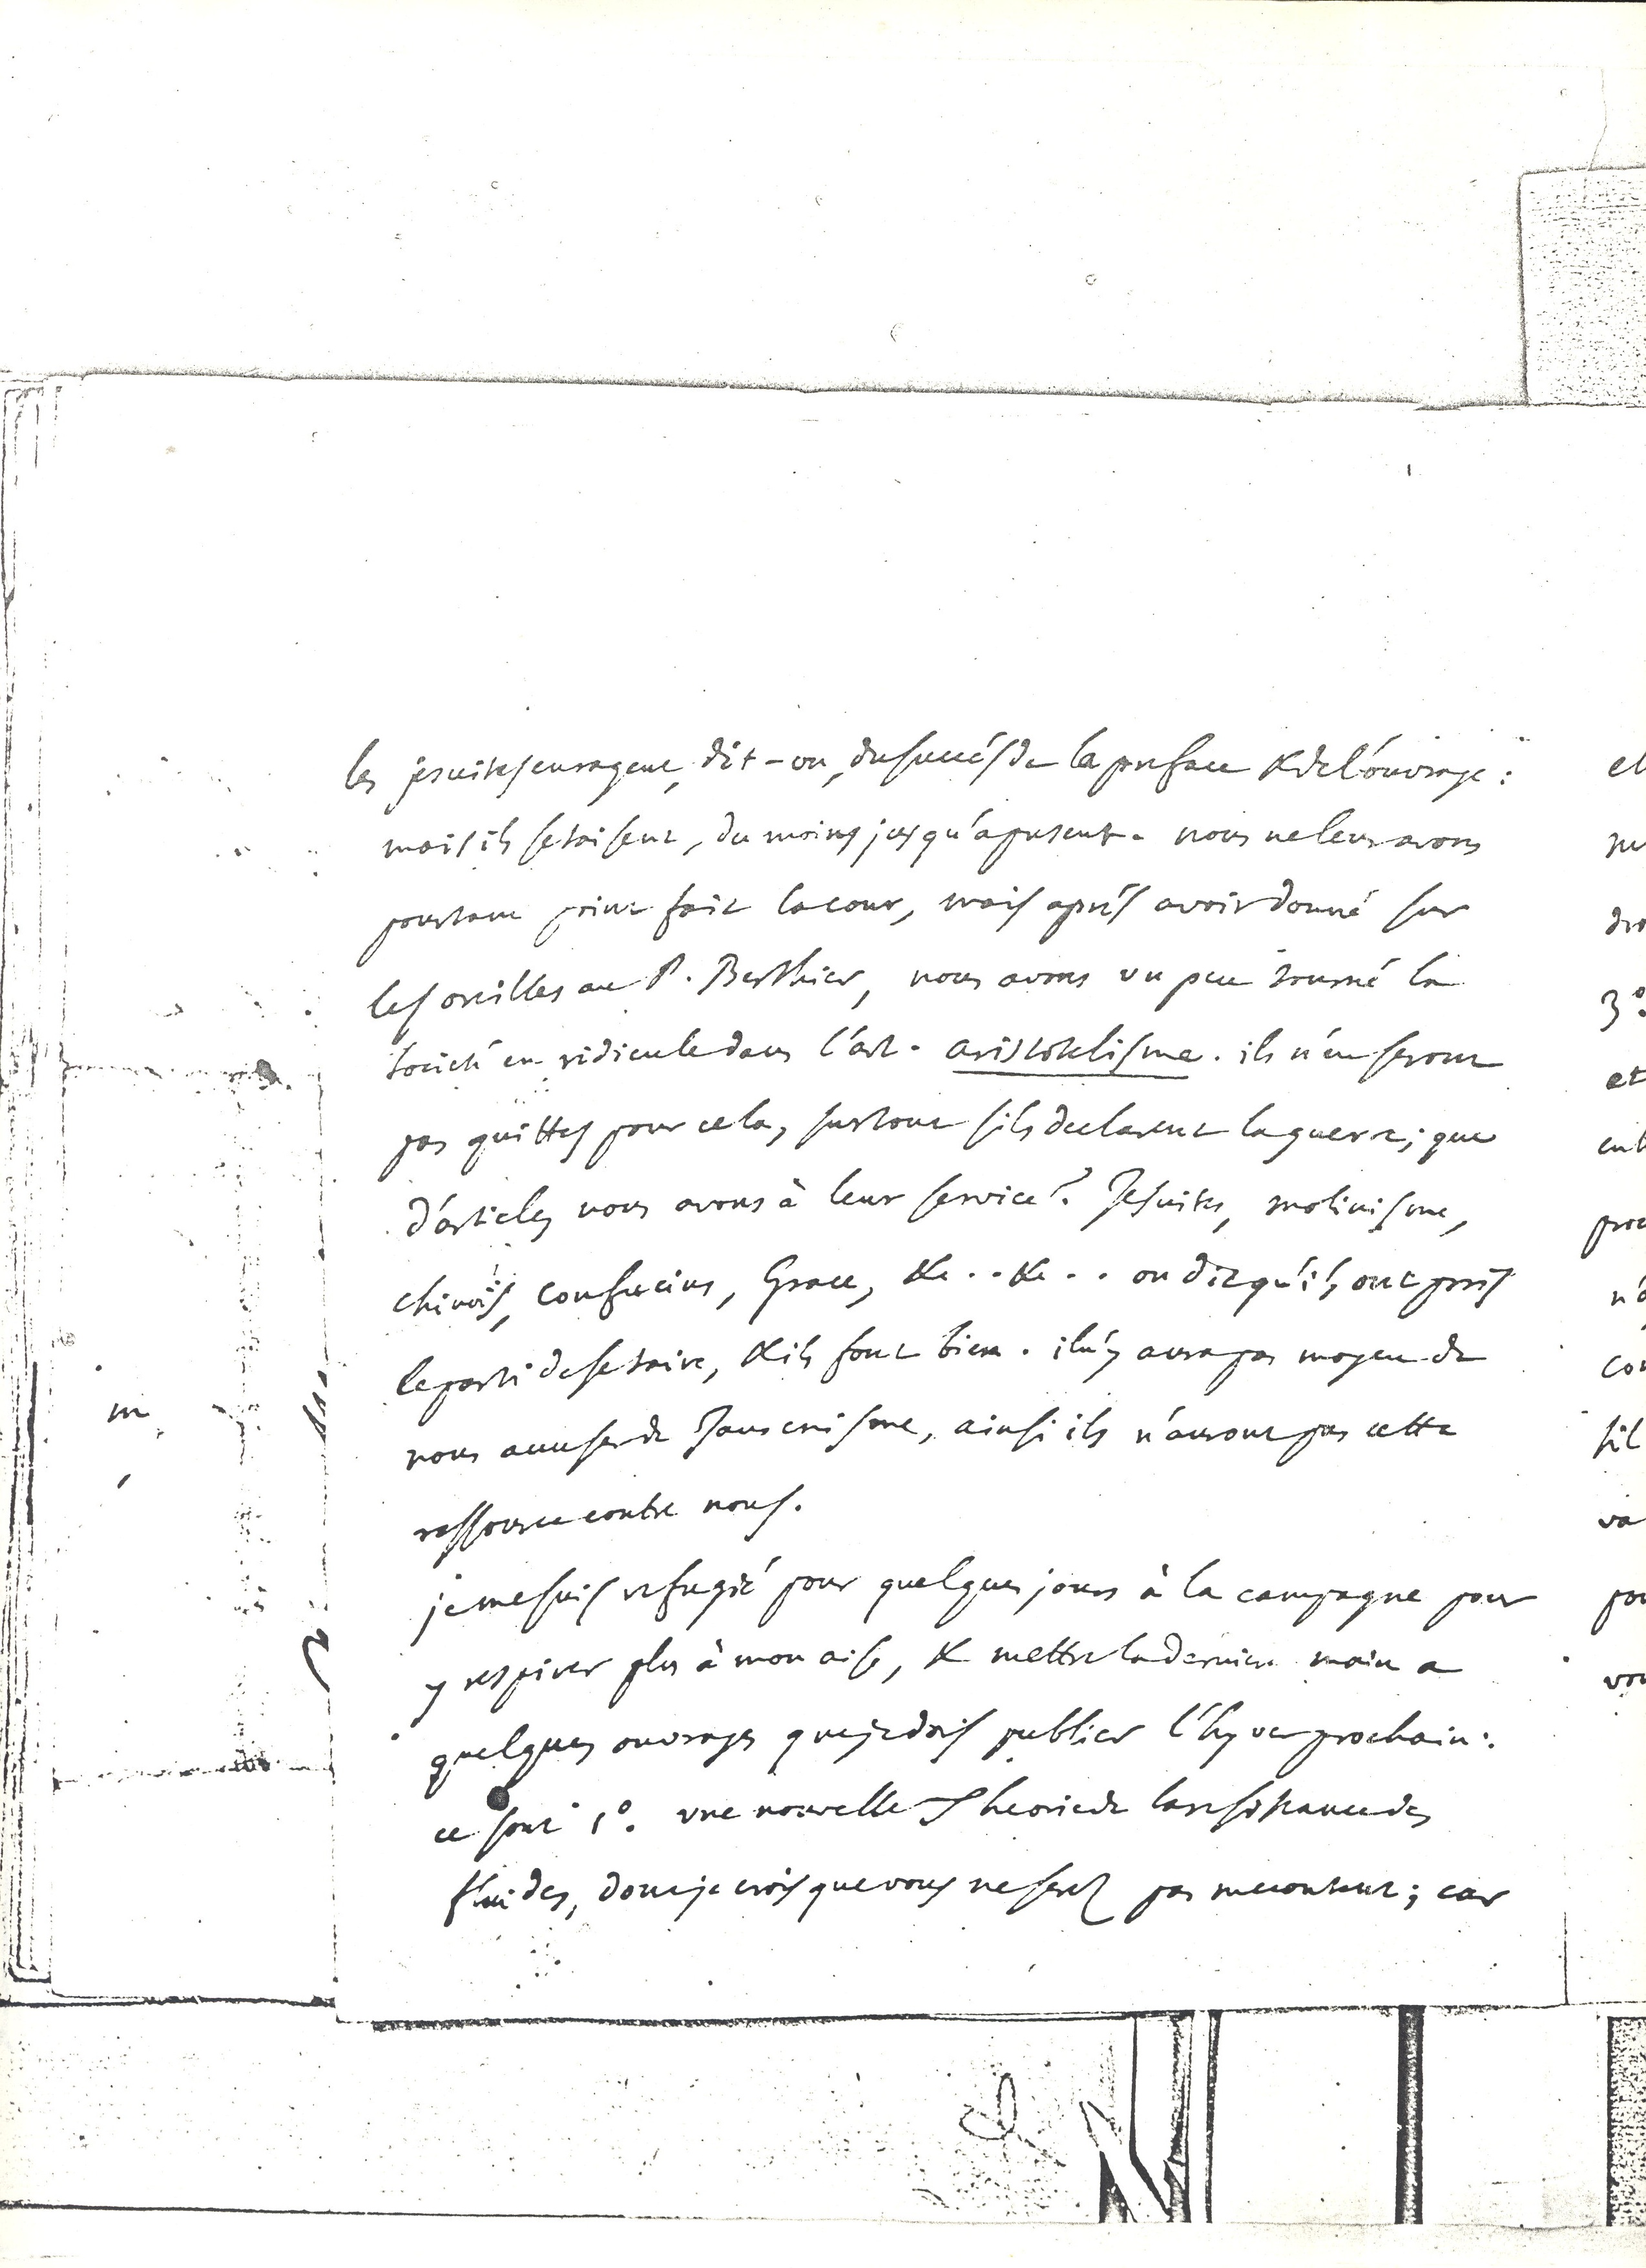 les jesuites enragent, dit-on, du succés de la preface & de l'ouvrage :
mais ils se taisent, du moins jusqu'a present. nous ne leur avons
pourtant point fait la cour, mais aprés avoir donné sur
les oreilles au P. Berthier, nous avons un peu tourné la
société en ridicule dans l'art. aristotelisme. ils n'en seront
pas quittes pour cela, surtout s'ils declarent la guerre; que
d'articles nous avons à leur service? Jesuites, molinisme,
chinois, confucius, Grace, &c..&c.. on dit qu'ils ont pris
le parti de se taire, & ils font bien. il n'y aura pas moyen de
nous accuser de Jansenisme, ainsi ils n'auront pas cette
ressource contre nous.
je me suis refugié pour quelques jours à la campagne pour
y respirer plus à mon aise, & mettre la derniere main a
quelques ouvrages que je dois publier l'hyver prochain :
ce sont 1°. une nouvelle Theorie de la resistance des
fluides, dont je crois que vous ne serez pas mecontent; car
el
dro
3°.
et
ent
pro
n'a
con
sil
va
pou
vou